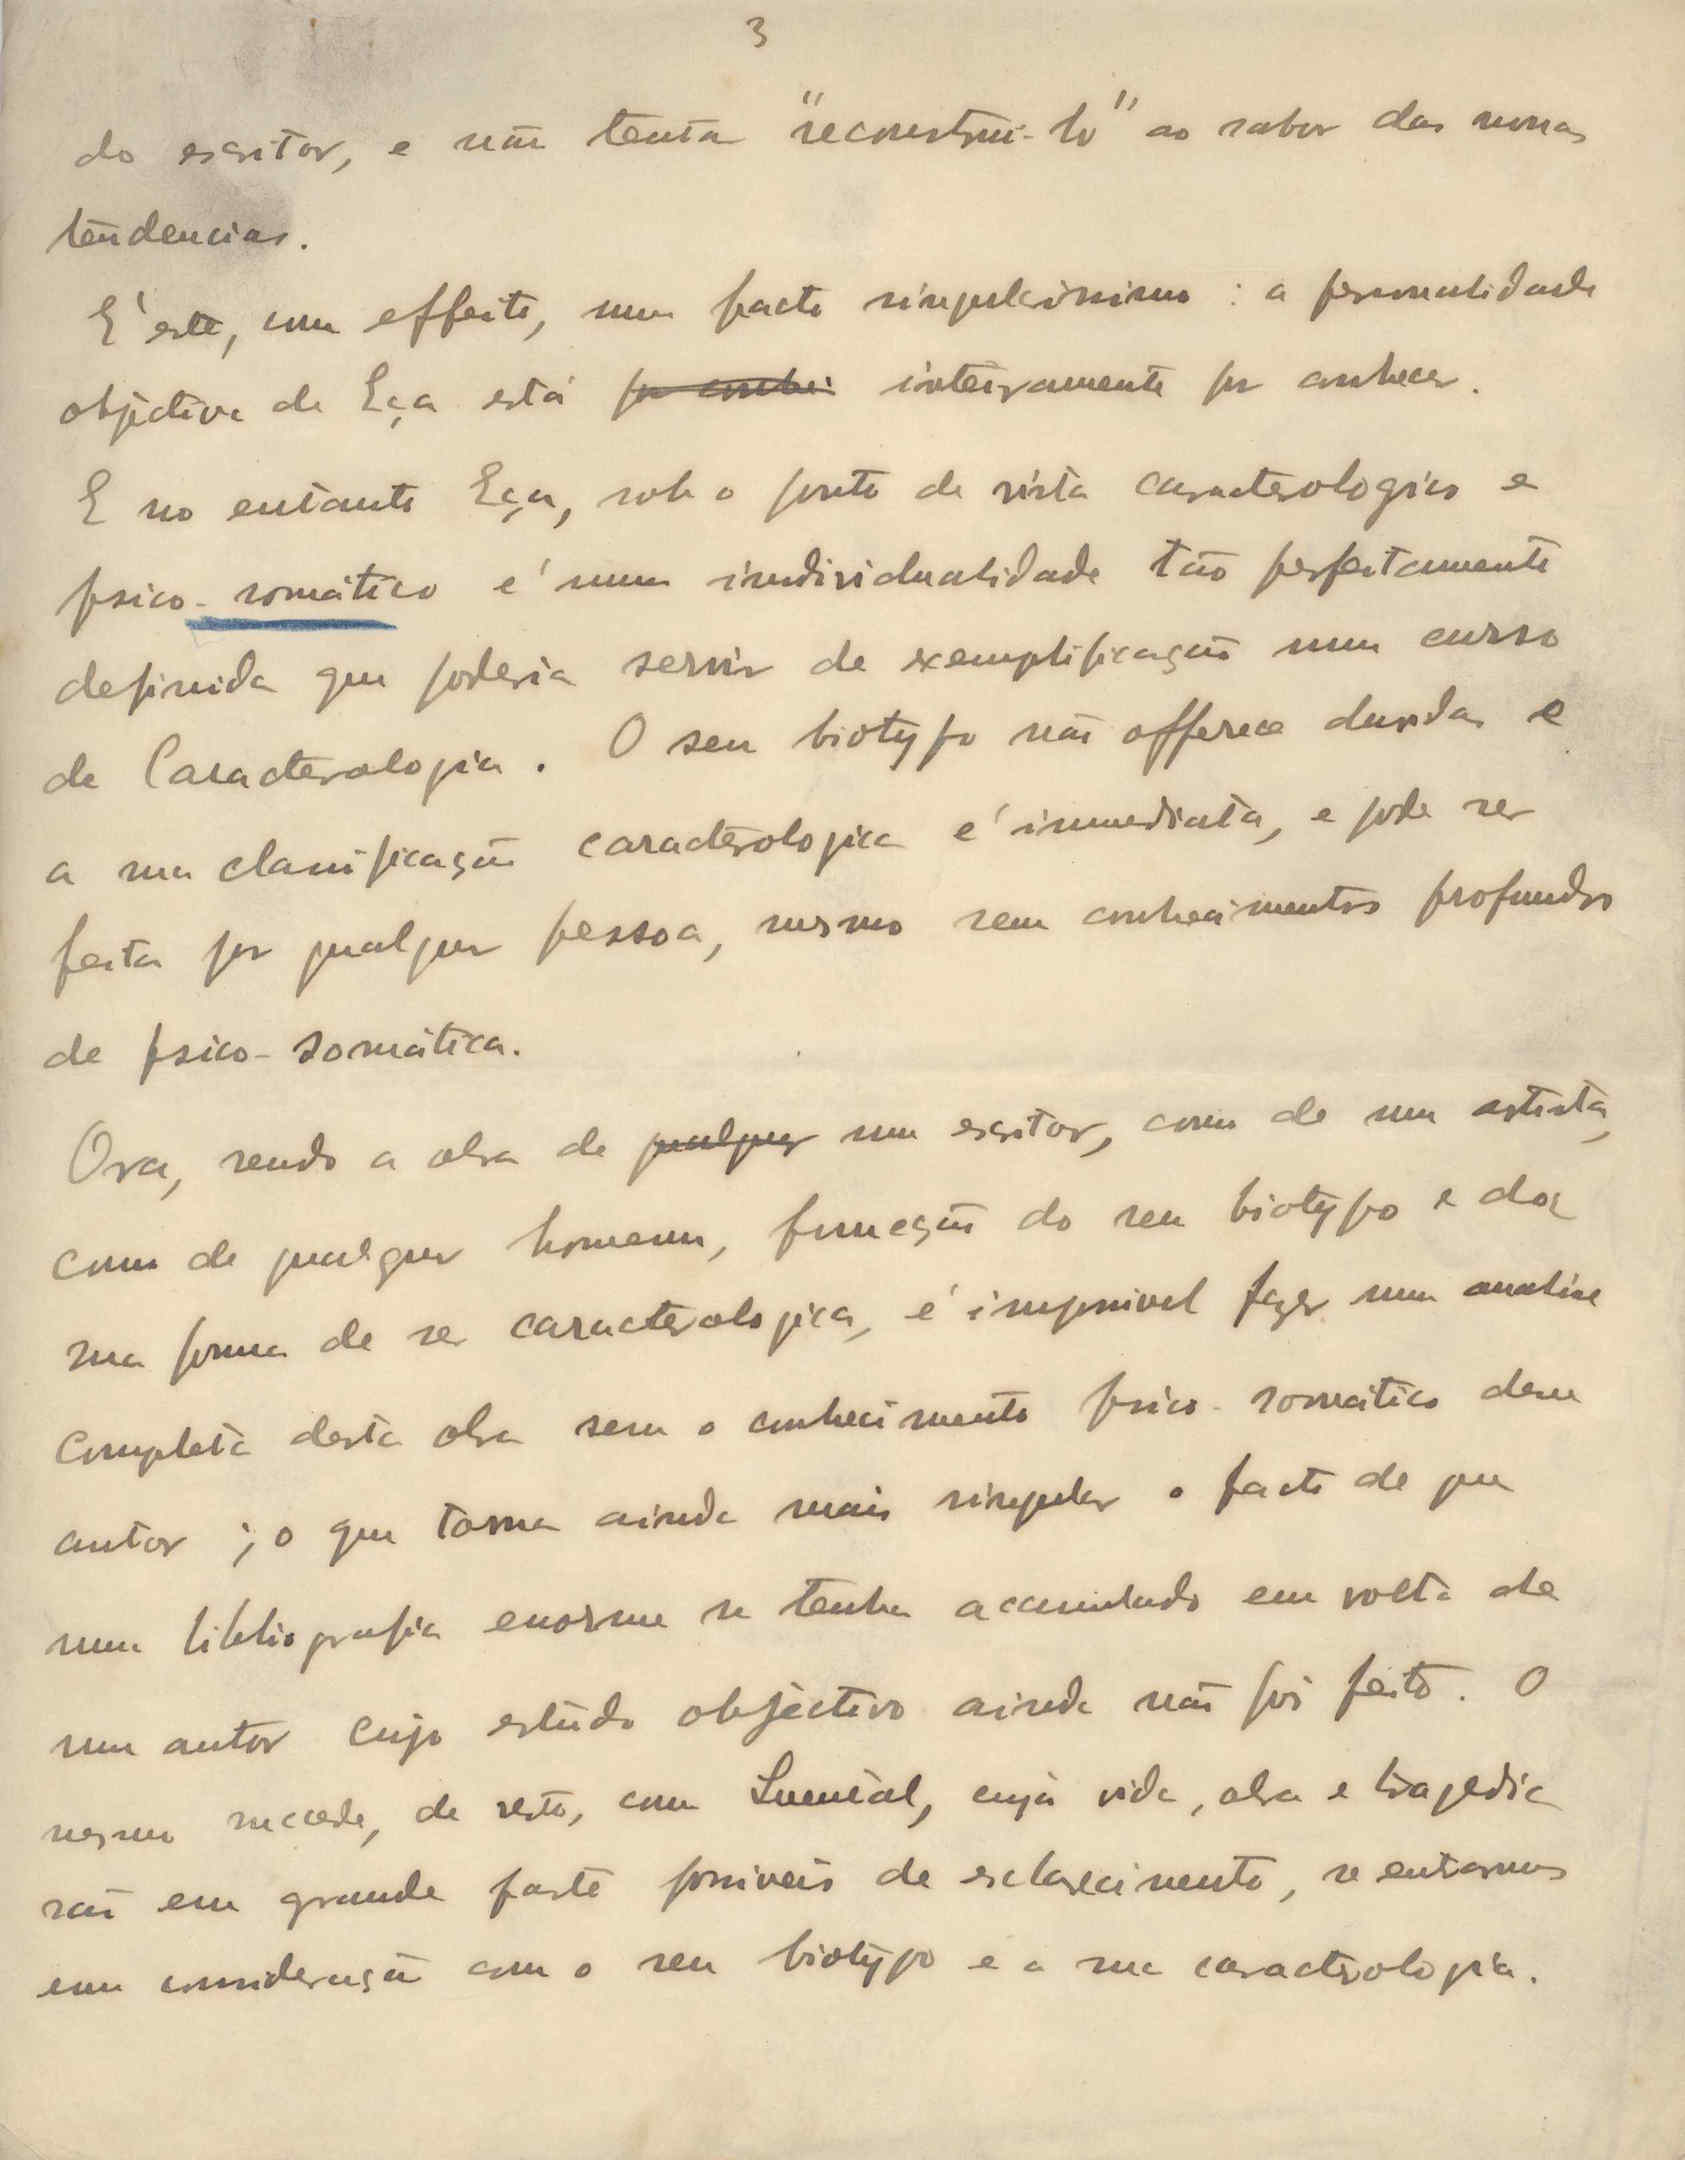 3
do escritor, e não tenta "reconstrui-lo" ao sabor das novas
tendencias.
E' este, com effeito, um facto singularissimo : a personalidade
objectiva de Eça está por conhe inteiramente por conhecer.
E no entanto Eça, sob o ponto de vista caracterologico e
psico-somático é uma individualidade tão perfeitamente
definida que poderia servir de exemplificação num curso
de Caracterologia. O seu biotypo não offerece duvidas e
a sua classificação caracterologica é immediata, e pode ser
feita por qualquer pessoa, mesmo sem conhecimentos profundos
de psico-somática.
Ora, sendo a obra de qualquer um escritor, como de um artista,
como de qualquer homem, funcção do seu biotypo e da
sua forma de ser caracterologica, é impossivel fazer uma analise
completa desta obra sem o conhecimento psico-somático desse
autor ; o que torna ainda mais singular o facto de que
uma bibliografia enorme se tenha acumulado em volta de
um autor cujo estudo objectivo ainda não foi feito. O
mesmo succede, de resto, com Quental, cuja vida, obra e tragedia
são em grande parte possiveis de esclarecimento, se entrarmos
em consideração com o seu biotypo e a sua caracterologia.